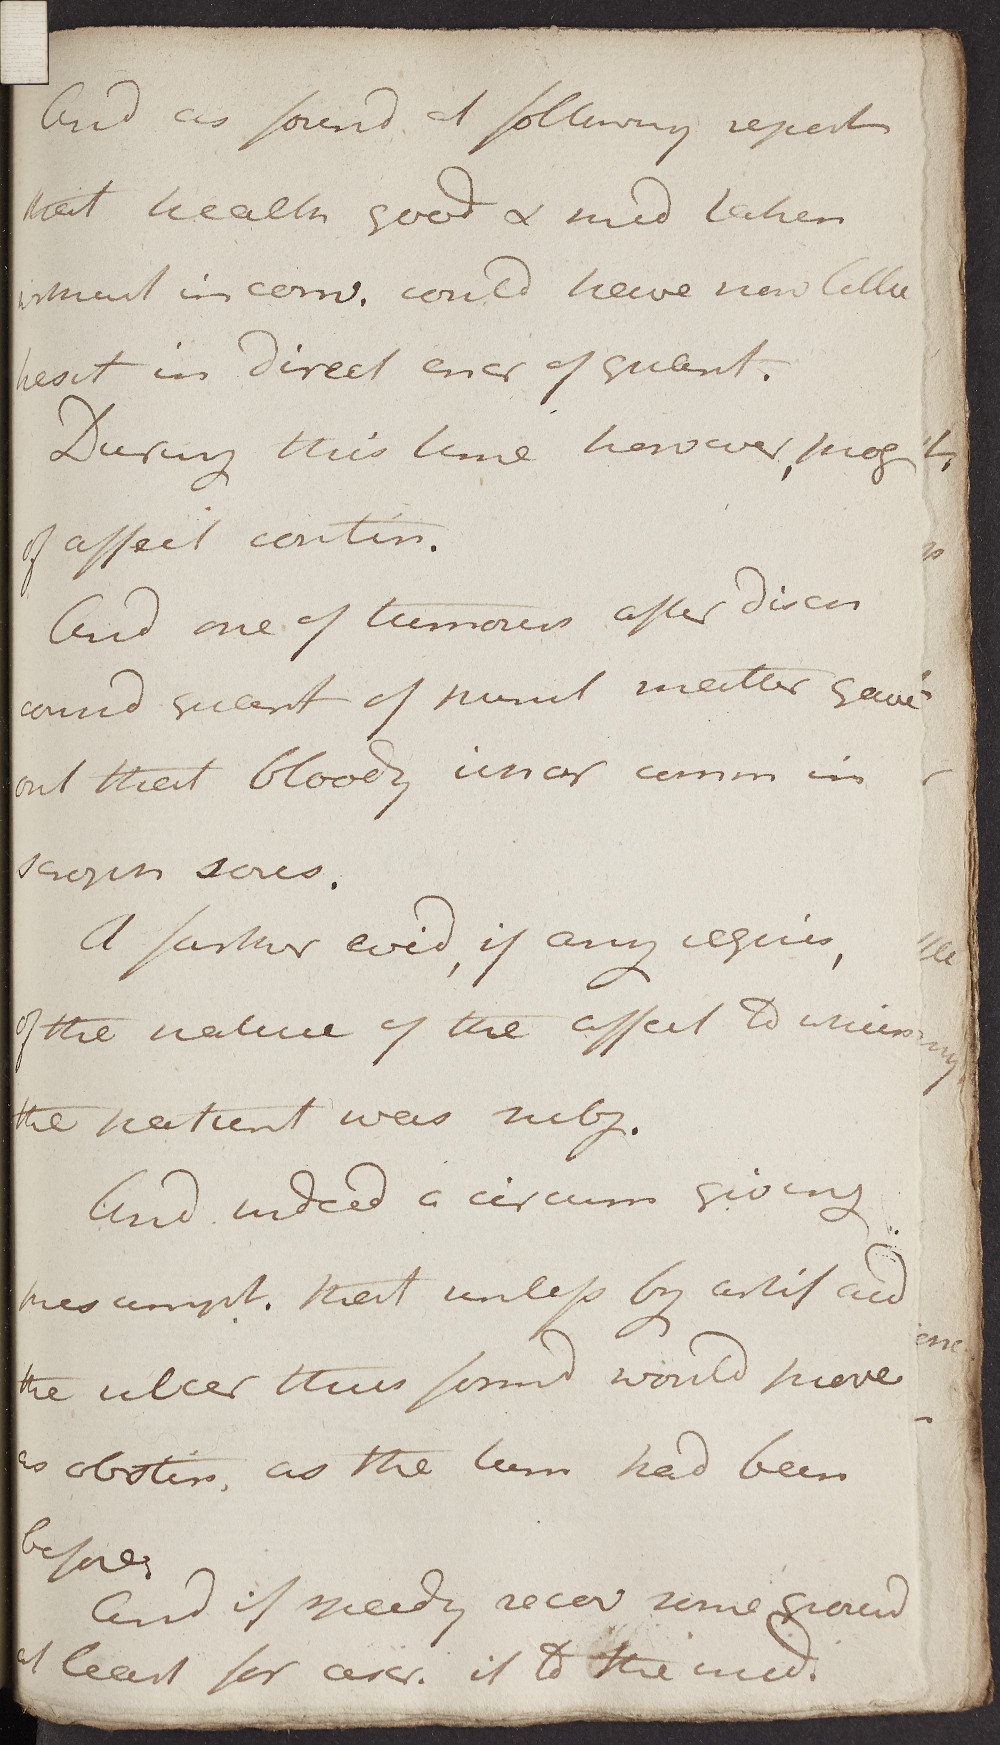 And as found at following report
that health good & med taken
without inconv. could have now little
hesit in direct encr of quant.
During this time however, prog
of affect contin.
And one of tumours after disch
consid quant of purul matter gave
out that bloody ichor comm in
scroph sores.
A farther evid, if any requis,
of the nature of the affect to which
the patient was subj.
And indeed a circum giving
presumpt. that unless by artif aid
the ulcer thus formd would prove
as obstin. as the tum had been
before.
And if speedy recov some ground
at least for ascr. it to the med.